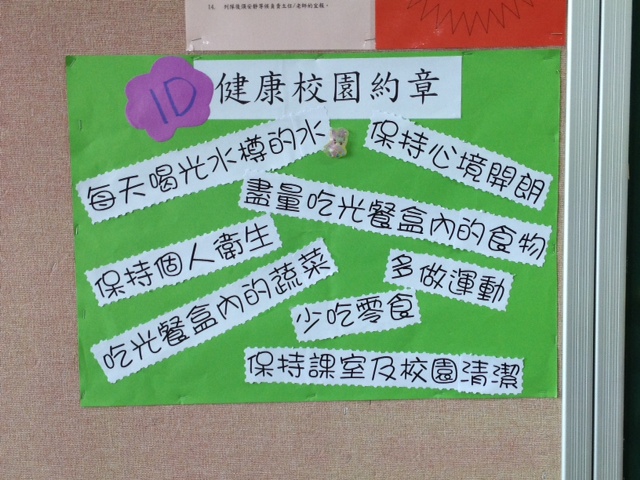 14. 列隊後須安靜等候負責主任/老師的宣報。
1D
健康校園約章
每天喝光水樽的水
保持心境開朗
盡量吃光餐盒內的食物
保持個人衛生
多做運動
吃光餐盒內的蔬菜
少吃零食
保持課室及校園清潔